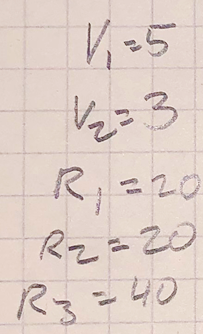 V₁=5
V₂=3
R₁=20
R₂=20
R₃=40